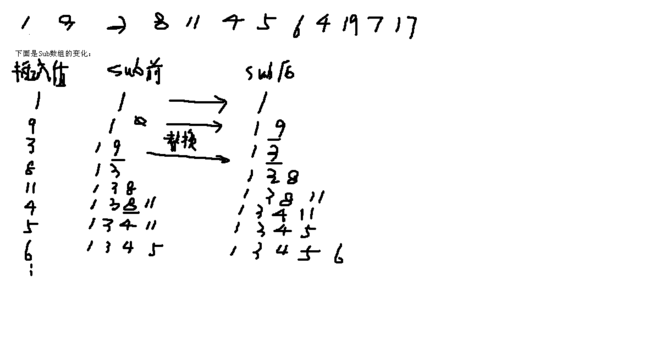 1 9 3 8 11 4 5 6 4 19 7 17
下面是Sub数组的变化：
插入值 Sub前 Sub后
1 1 1
9 1 1 9
3 替换 1 9 1 3
8 1 3 1 3 8
11 1 3 8 1 3 8 11
4 1 3 8 11 1 3 4 11
5 1 3 4 11 1 3 4 5
6 1 3 4 5 1 3 4 5 6